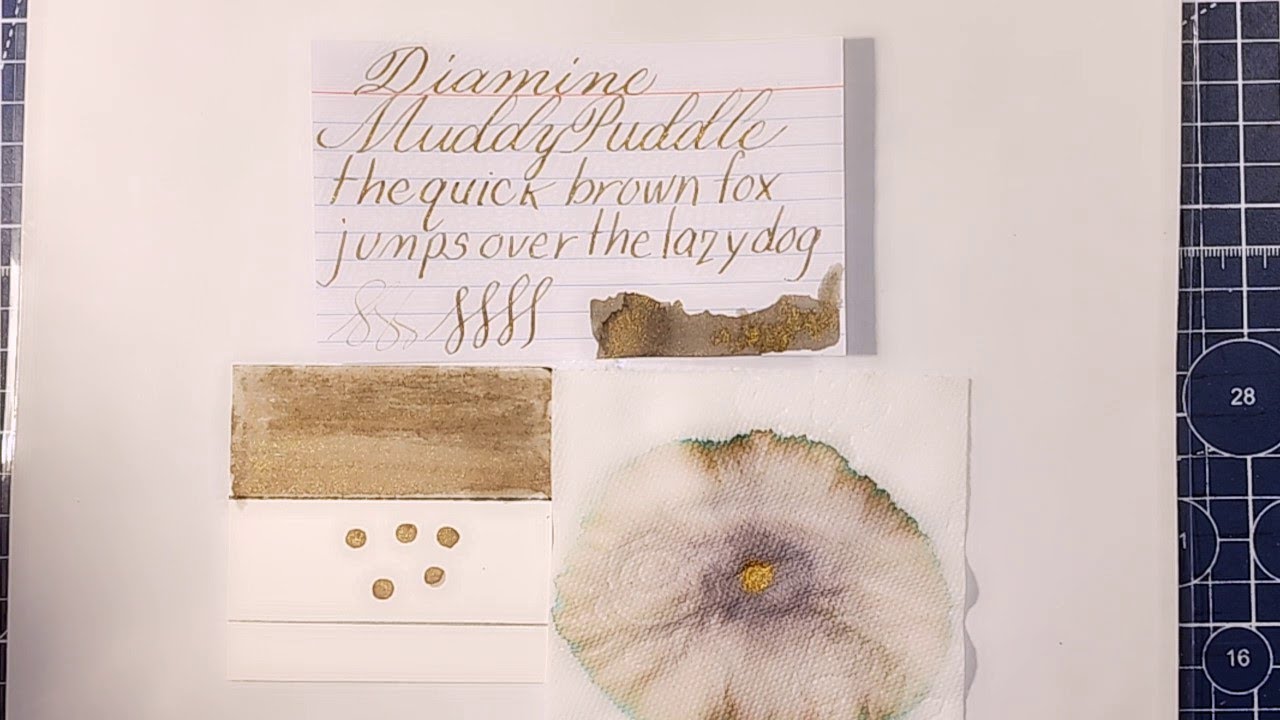 Diamine
Muddy Puddle
the quick brown fox
jumps over the lazy dog
28
1
16